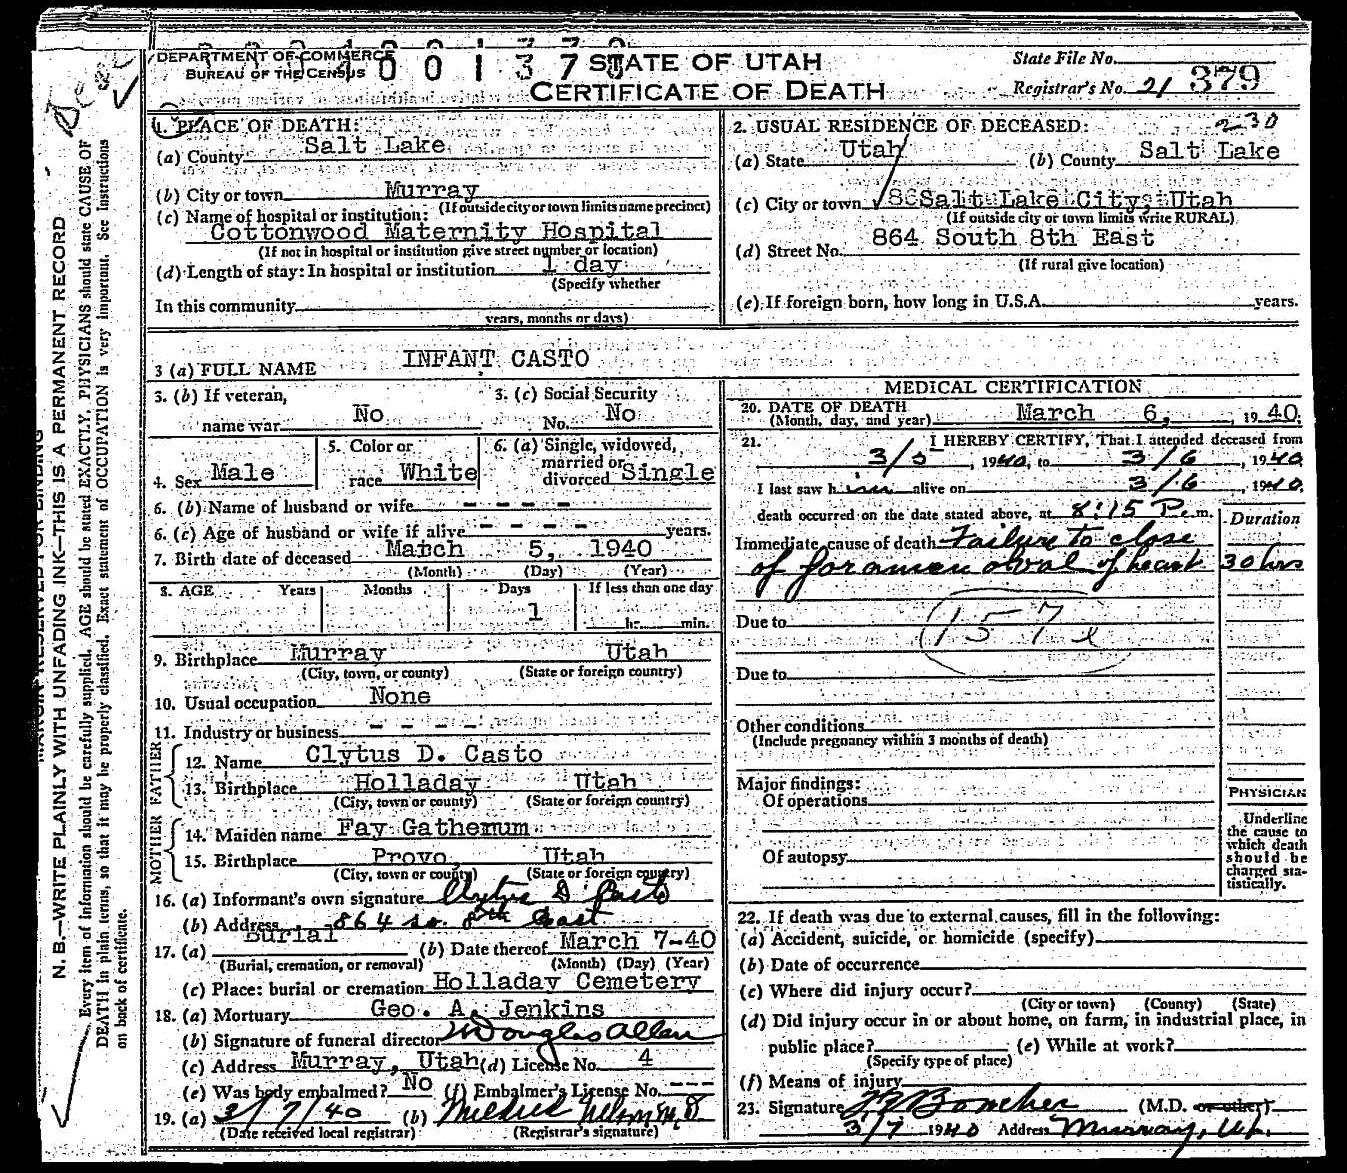 DEPARTMENT OF COMMERCE
BUREAU OF THE CENSUS
STATE OF UTAH
CERTIFICATE OF DEATH
State File No.
Registrar's No. 21 379
1. PLACE OF DEATH:
(a) County Salt Lake
(b) City or town Murray
(If outside city or town limits name precinct)
(c) Name of hospital or institution:
Cottonwood Maternity Hospital
(If not in hospital or institution give street number or location)
(d) Length of stay: In hospital or institution 1 day
(Specify whether
In this community
years, months or days)
2. USUAL RESIDENCE OF DECEASED: 230
(a) State Utah (b) County Salt Lake
(c) City or town Salt Lake City, Utah
(If outside city or town limits write RURAL)
(d) Street No. 864 South 8th East
(If rural give location)
(e) If foreign born, how long in U.S.A. years.
3 (a) FULL NAME INFANT CASTO
3. (b) If veteran, name war No
3. (c) Social Security No. No
4. Sex Male
5. Color or race White
6. (a) Single, widowed, married or divorced Single
6. (b) Name of husband or wife - - - -
6. (c) Age of husband or wife if alive - - - - years.
7. Birth date of deceased March 5, 1940
(Month) (Day) (Year)
8. AGE Years Months Days If less than one day
1 hr. min.
9. Birthplace Murray Utah
(City, town, or county) (State or foreign country)
10. Usual occupation None
11. Industry or business - - - -
FATHER
12. Name Clytus D. Casto
13. Birthplace Holladay Utah
(City, town or county) (State or foreign country)
MOTHER
14. Maiden name Fay Gatherum
15. Birthplace Provo, Utah
(City, town or county) (State or foreign country)
16. (a) Informant's own signature Clytus D Casto
(b) Address 864 so. 8th East
17. (a) Burial (b) Date thereof March 7-40
(Burial, cremation, or removal) (Month) (Day) (Year)
(c) Place: burial or cremation Holladay Cemetery
18. (a) Mortuary Geo. A. Jenkins
(b) Signature of funeral director Douglas Allen
(c) Address Murray, Utah (d) License No. 4
(e) Was body embalmed? No (f) Embalmer's License No. ---
19. (a) 3/7/40 (b) Mildred Nelson M.D.
(Date received local registrar) (Registrar's signature)
MEDICAL CERTIFICATION
20. DATE OF DEATH
(Month, day, and year) March 6, 1940
21. I HEREBY CERTIFY, That I attended deceased from
3/5, 1940, to 3/6, 1940
I last saw him alive on 3/6, 1940
death occurred on the date stated above, at 8:15 P. m.
Duration
Immediate cause of death Failure to close
of foramen oval of heart 30 hrs
Due to 157e
Due to
Other conditions
(Include pregnancy within 3 months of death)
Major findings:
Of operations
Of autopsy
PHYSICIAN
Underline the cause to which death should be charged statistically.
22. If death was due to external causes, fill in the following:
(a) Accident, suicide, or homicide (specify)
(b) Date of occurrence
(c) Where did injury occur?
(City or town) (County) (State)
(d) Did injury occur in or about home, on farm, in industrial place, in
public place? (e) While at work?
(Specify type of place)
(f) Means of injury
23. Signature Boucher (M.D. or other)
3/7 1940 Address Murray, Ut.
N. B.—WRITE PLAINLY WITH UNFADING INK—THIS IS A PERMANENT RECORD
Every item of information should be carefully supplied. AGE should be stated EXACTLY. PHYSICIANS should state CAUSE OF
DEATH in plain terms, so that it may be properly classified. Exact statement of OCCUPATION is very important. See instructions
on back of certificate.